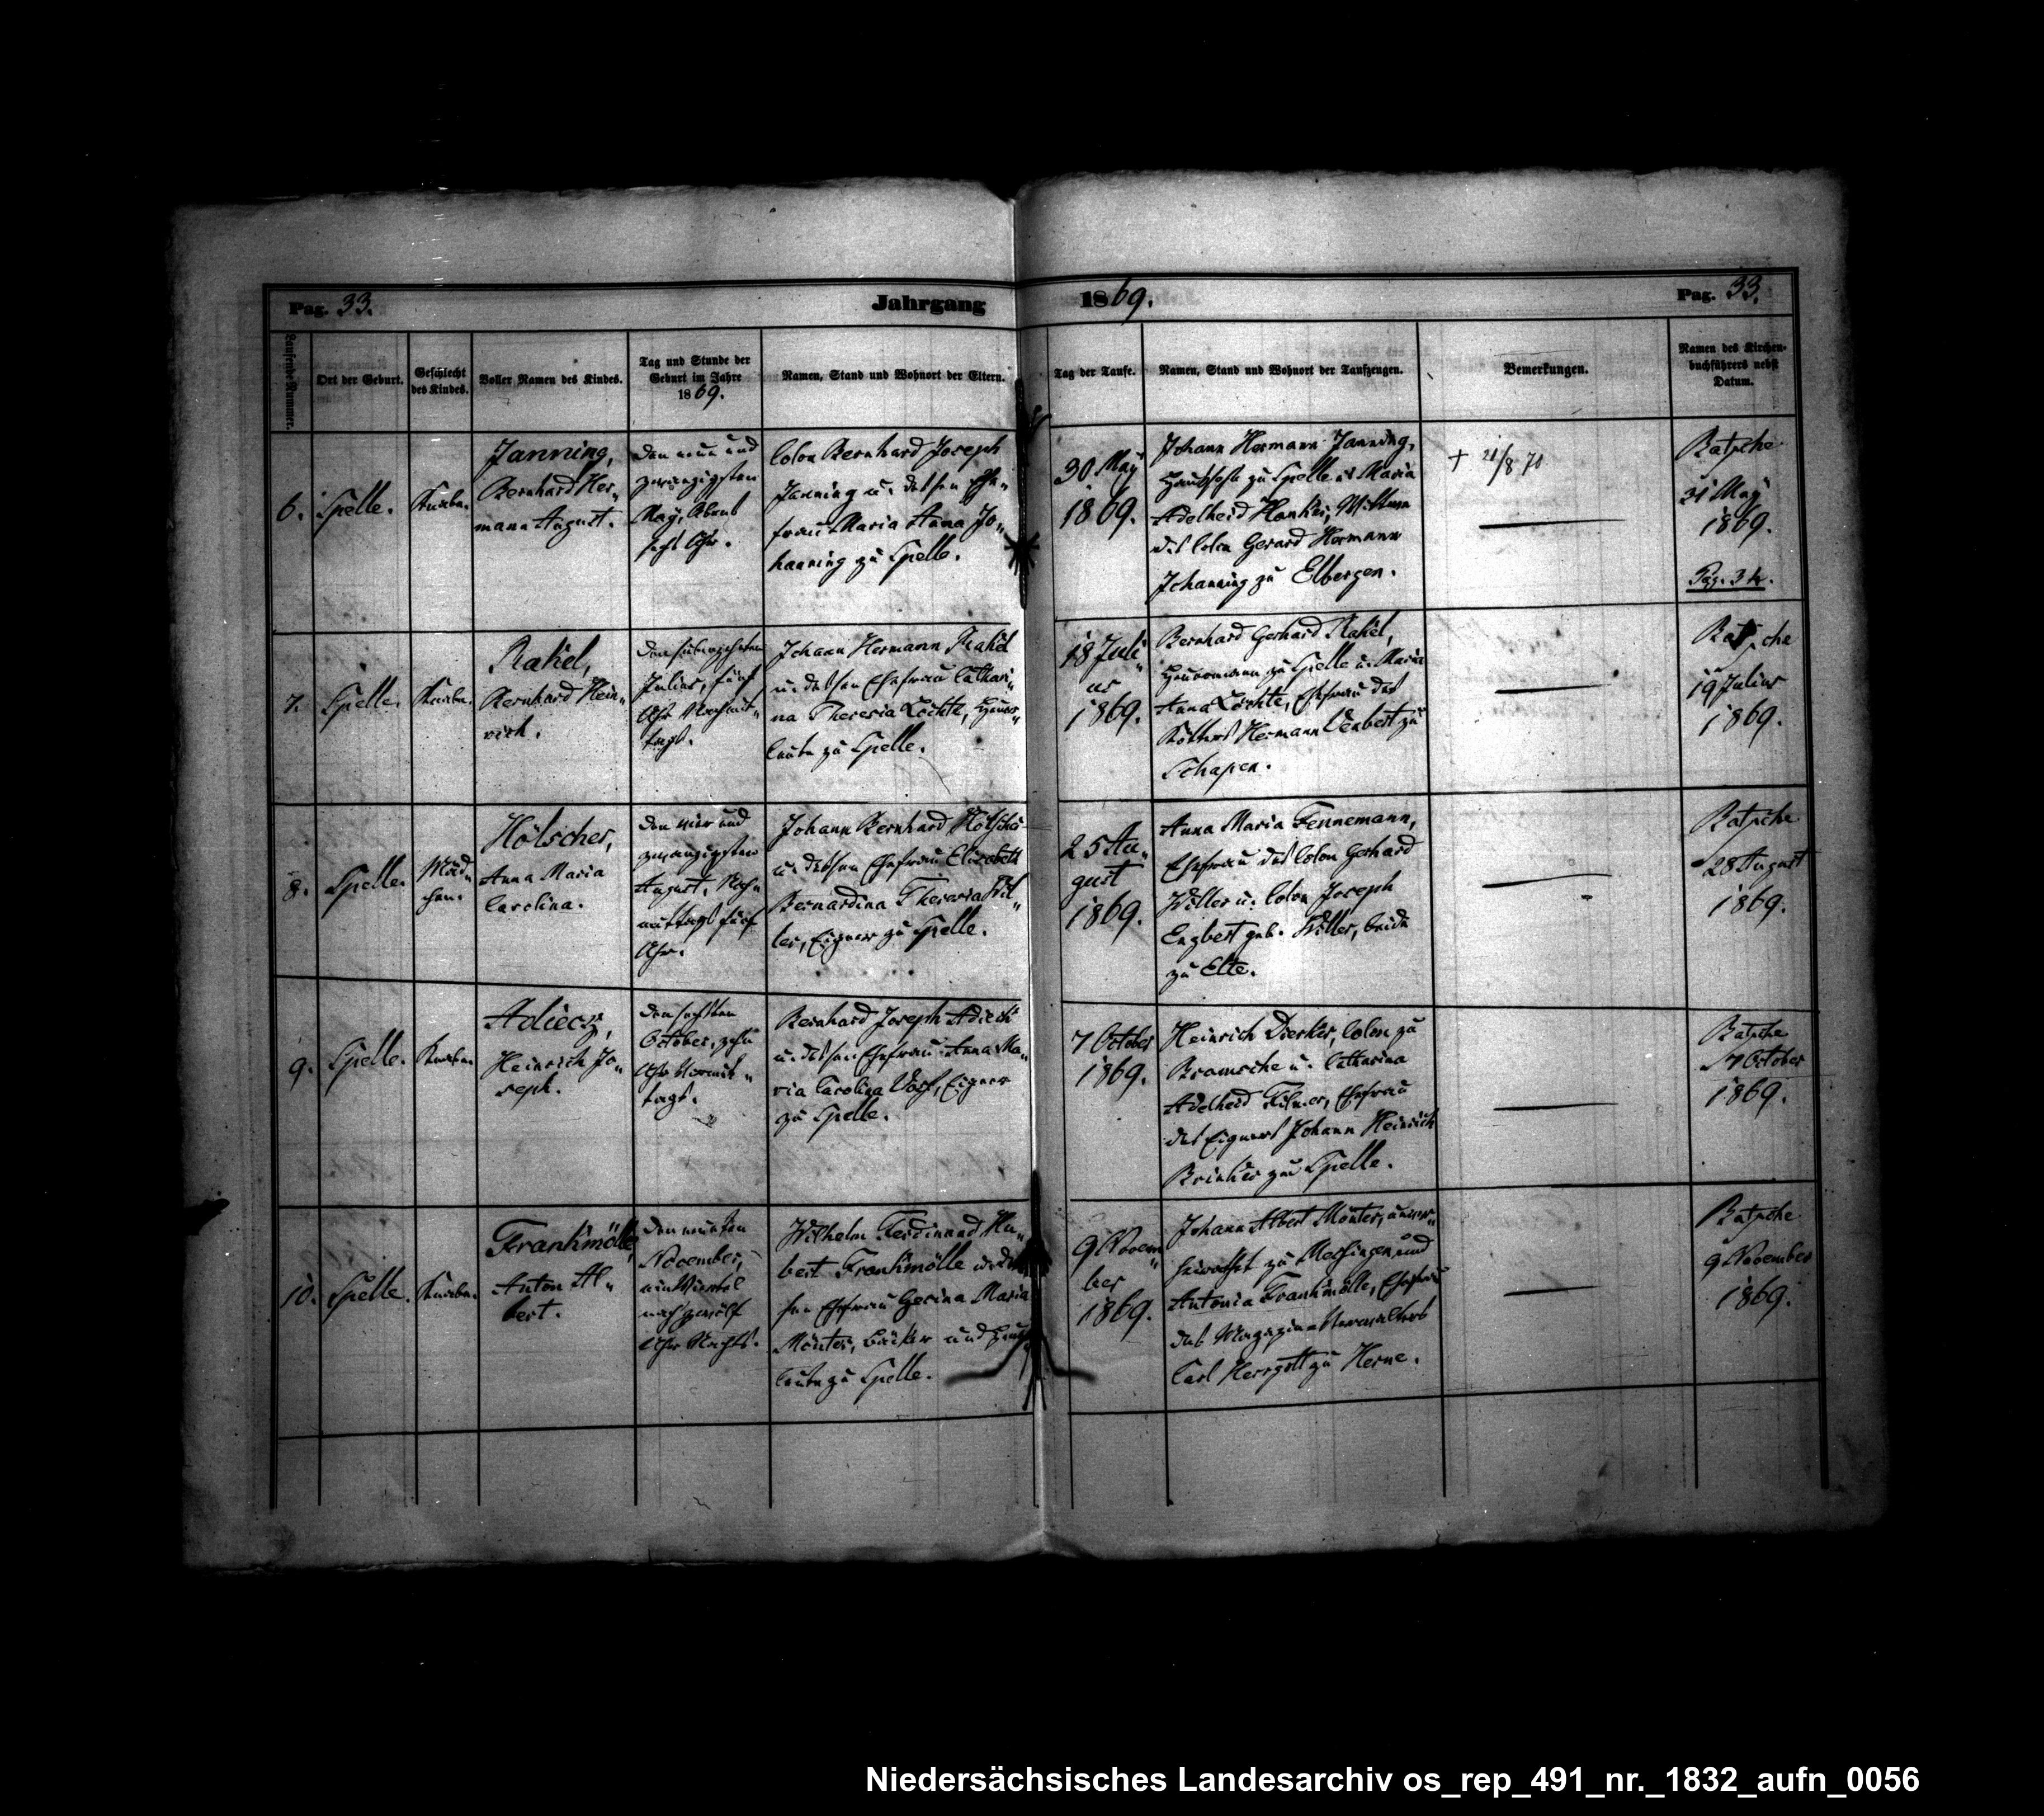 Pag. 33.
Jahrgang 1869.
Pag. 33.
Laufende Nummer.
Ort der Geburt.
Geschlecht
des Kindes.
Voller Namen des Kindes.
Tag und Stunde der
Geburt im Jahre
1869.
Namen, Stand und Wohnort der Eltern.
Tag der Taufe.
Namen, Stand und Wohnort der Taufzeugen.
Bemerkungen.
Namen des Kirchen-
buchführers nebst
Datum.
6.
Spelle.
Knabe.
Janning,
Bernhard Her„
mann August.
Den neun und
zwanzigsten
May, Abend
sechs Uhr.
Colon Bernhard Joseph
Janning u. dessen Ehe„
frau Maria Anna Jo„
hanning zu Spelle.
30 May
1869.
Johann Hermann Janning,
zu Spelle u. Maria
Adelheid Wittwe
des Colon Gerard Hermann
Johanning zu Elbergen.
+ 21/8 70
Batsche
31 May
1869.
Pag. 34.
7.
Spelle.
Knabe.
Rakel,
Bernhard Hein„
rich.
Den siebenzehnten
Julius, fünf
Uhr Nachmit„
tags.
Johann Hermann Rakel
u. dessen Ehefrau Cathari„
na Theresia Löchte, Heuer„
leute zu Spelle.
18 Juli„
us
1869.
Bernhard Gerhard Rakel,
Heuermann zu Spelle u. Maria
Anna Löchte, Ehefrau des
Kötters Hermann zu
Schapen.
Batsche
19 Julius
1869.
8.
Spelle.
Mäd„
chen.
Hölscher,
Anna Maria
Carolina.
Den vier und
zwanzigsten
August, Nach„
mittags fünf
Uhr.
Johann Bernhard Hölscher
u. dessen Ehefrau Elisabeth
Bernardina Theresia Wil„
ler, Eigner zu Spelle.
25 Au„
gust
1869.
Anna Maria Fennemann,
Ehefrau des Colon Gerhard
Willer u. Colon Joseph
Engbert geb. Willer, beide
zu Elte.
Batsche
28 August
1869.
9.
Spelle.
Knabe.
Adiecz,
Heinrich Jo„
seph.
Den sechsten
October, zehn
Uhr Vormit„
tags.
Bernhard Joseph
u. dessen Ehefrau Anna Ma„
ria Carolina Eigner
zu Spelle.
7 October
1869.
Heinrich Dierker, Colon zu
Bramsche u. Catharina
Adelheid Ehefrau
des Eigners Johann Heinrich
Brinker zu Spelle.
Batsche
7 October
1869.
10.
Spelle.
Knabe.
Frankmölle,
Anton Al„
bert.
Den neunten
November,
ein Viertel
nach zwölf
Uhr Nachts.
Wilhelm Ferdinand Hu„
bert Frankmölle u. des
sen Ehefrau Gesina Maria
Mönter, und
leute zu Spelle.
9 Novem„
ber
1869.
Johann Albert Mönter, unver„
heirathet zu und
Antonia Frankmölle, Ehefrau
des Magazin-Verwalters
Carl Herrgott zu Herne.
Batsche
9 November
1869.
Niedersächsisches Landesarchiv os_rep_491_nr._1832_aufn_0056